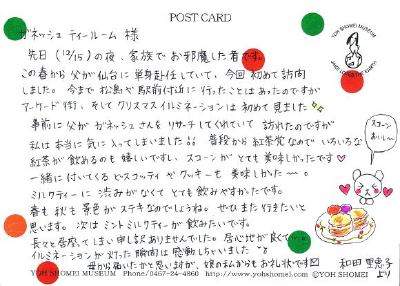 POST CARD
ガネッシュ ティールーム 様
先日(12/15)の夜、家族でお邪魔した者です。
この春から父が仙台に単身赴任していて、今回初めて訪問
しました。今まで松島や駅前付近に行ったことはあったのですが
アーケード街、そしてクリスマスイルミネーションは初めて見ました
事前に父がガネッシュさんをリサーチしてくれていて訪れたのですが
私は本当に気に入ってしまいました!! 普段から紅茶党なのでいろいろな
紅茶が飲めるのも嬉しいですし、スコーンがとても美味しかったです♡
一緒に付いてくるビスコッティやクッキーも美味しかった〜。
ミルクティーに渋みがなくてとても飲みやすかったです。
春も秋も景色がステキなのでしょうね。ぜひまた行きたいと
思います。次はミントミルクティーが飲みたいです。
長々と居座ってしまい申し訳ありませんでした。居心地が良くて
イルミネーションが灯った瞬間は感動しちゃいました
母から届いたかと思いますが、娘の私からもお礼状です
和田 里恵子
より
スコーン
おいし〜
YOH SHOMEI MUSEUM
YOH SHOMEI MUSEUM Phone/0467-24-4860 http://www.yohshomei.com ©YOH SHOMEI